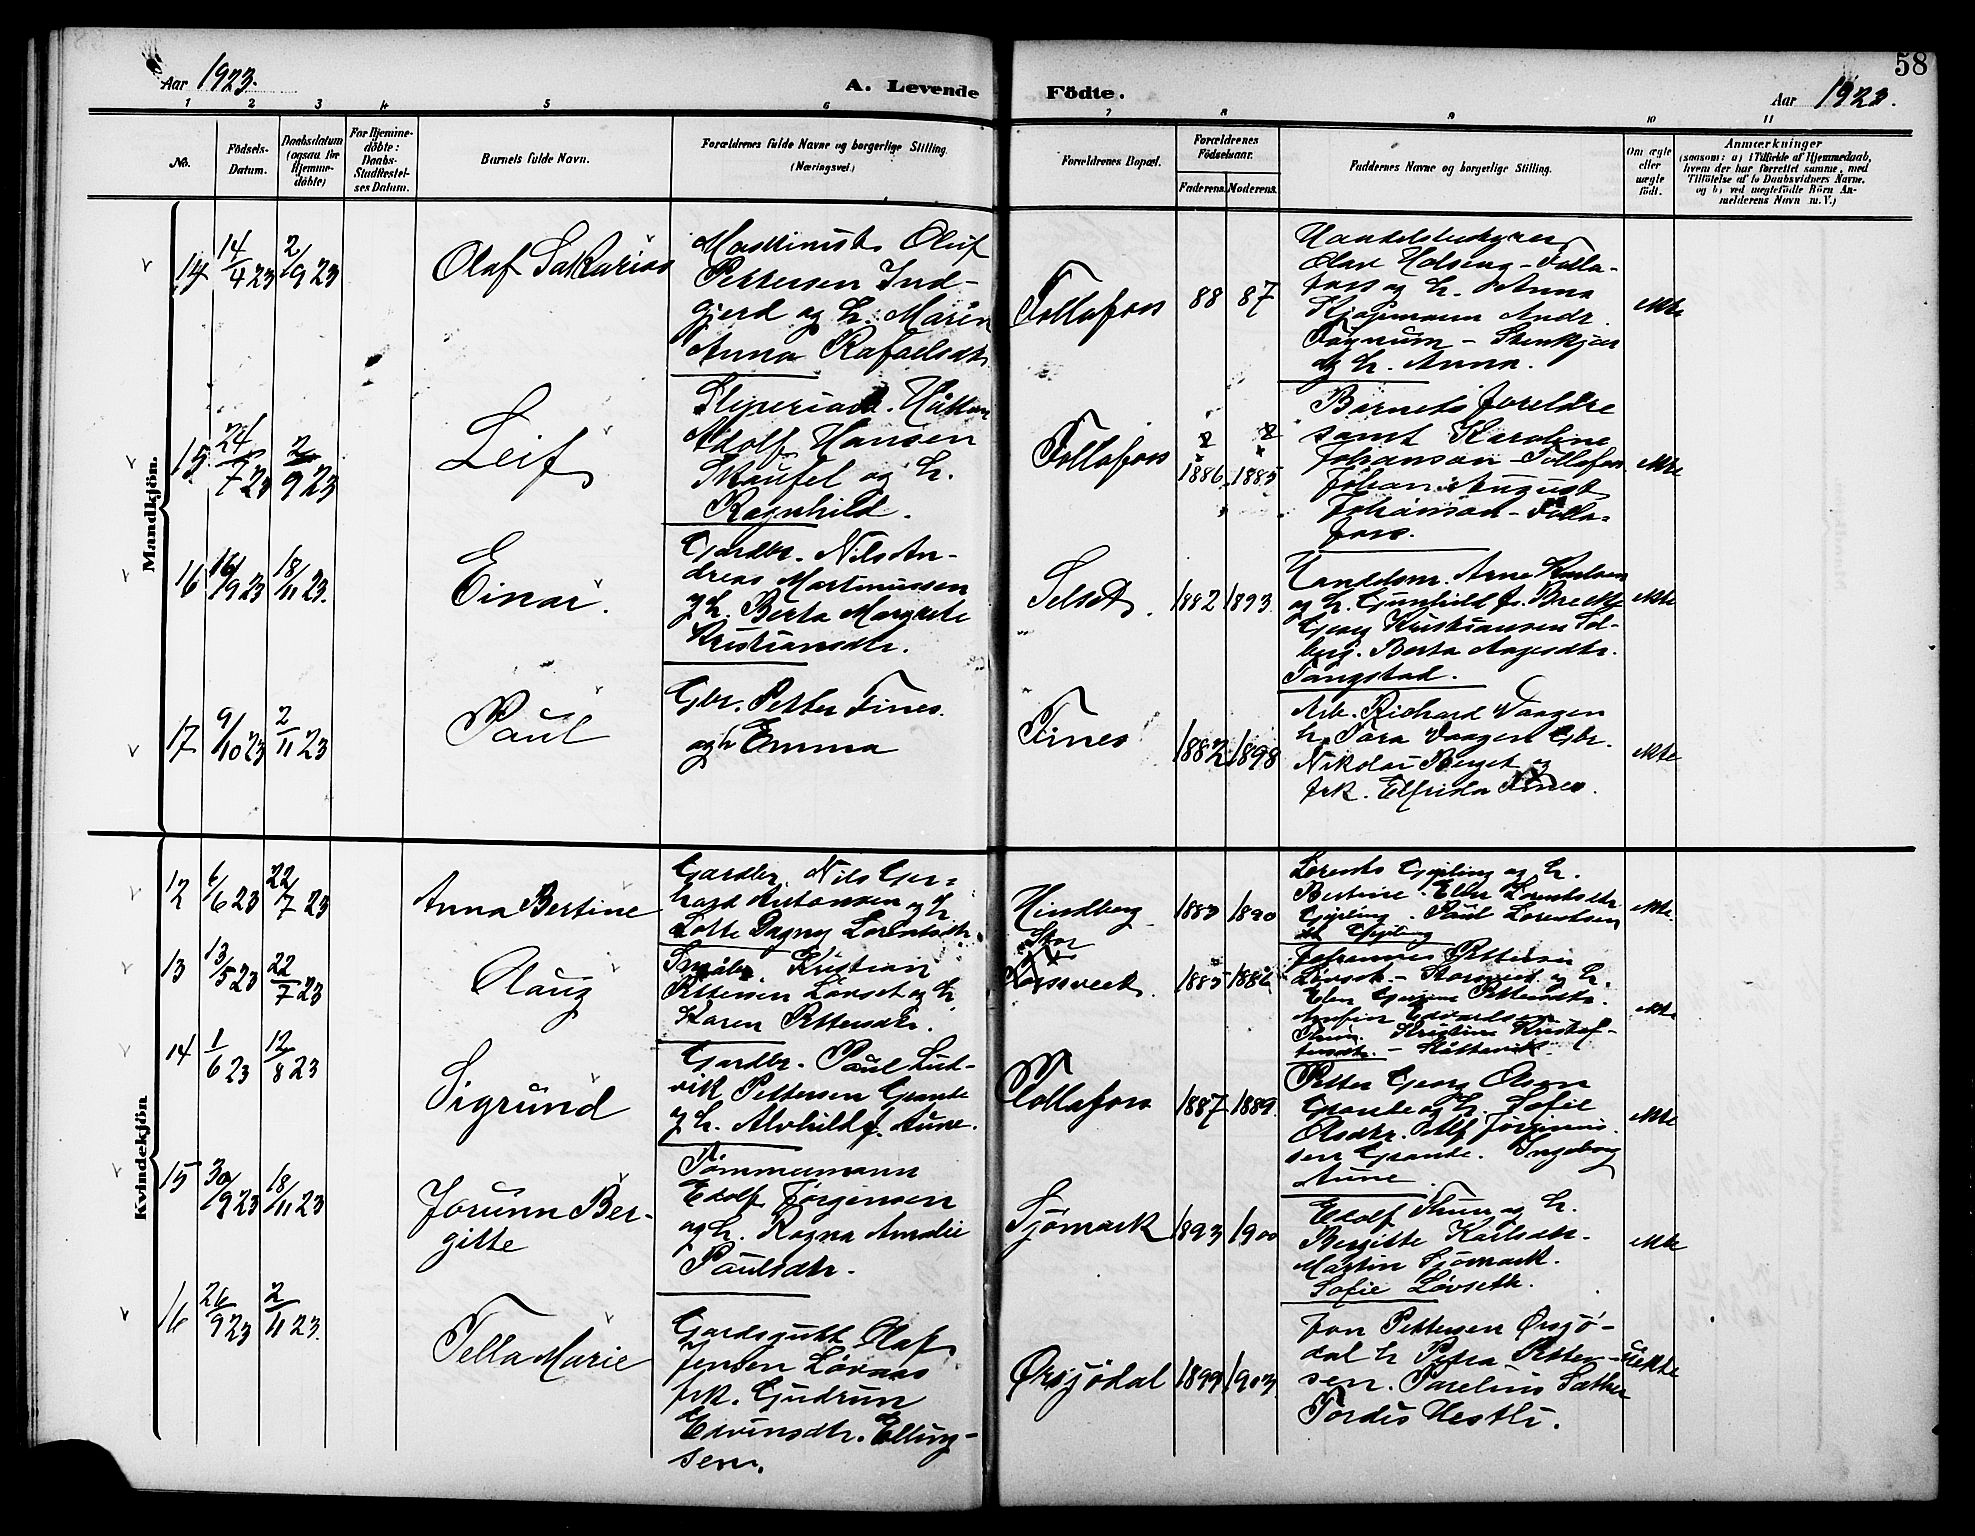 58
Aar 1923.
A. Levende Födte.
Aar 1923.
1 2 3 4 5 6 7 8 9 10 11
No.
Födsels-
Datum.
Daabsdatum
(ogsaa for
Hjemme-
döbte)
For Hjemme-
döbte:
Daabs-
Stadfæstel-
ses Datum.
Barnets fulde Navn.
Forældrenes fulde Navne og borgerlige Stilling.
(Næringsvei.)
Forældrenes Bopæl.
Forældrenes
Födselsaar.
Faderens. Moderens.
Faddernes Navne og borgerlige Stilling.
Om ægte
eller
uægte
födt.
Anmærkninger
(saasom: a) i Tilfælde af Hjemmedaab,
hvem der har forrettet samme, med
Tilföielse af to Daabsvidners Navne,
og b) ved uægtefödte Börn An-
melderens Navn m. V.)
Mandkjön.
14 14/4 23 2/9 23
Olaf Sakarias
Maskinist Oluf
Pettersen Ind-
gjerd og h. Maren
Anna Rafaelsdtr
Follafoss
88 87
Olav Holseng - Folla-
foss og h. Anna
Kjøpmann Andr.
Fagrum - Stenkjær
og h. Anna.
ekte
15 24/7 23 2/9 23
Leif
Adolf Hansen
Skaufel og h.
Ragnhild.
Follafoss
1886 1885
Barnets foreldre
samt Karoline
Johanson - Follafoss
Johan August
Johanson - Folla-
foss.
ekte
16 16/9 23 18/11 23.
Einar.
Gardbr. Nils An-
dreas Martinussen
og h. Berta Margrete
Kristiansdtr.
Selset.
1882 1893
Handelsm. Arne Karlsen
og h. Gunhild f. Brekke
Georg Kristiansen Sol-
berg. Berta Aagesdtr.
Tangstad.
ekte
17 9/10 23 2/11 23
Paul
Gbr. Petter Tines
og h Emma
Tines
1882 1898
Arb. Richard Vaagen
h. Sara Vaagen Gbr.
Nikolai Berget og
frk. Elfrida Tines.
ekte
Kvindekjön
12 6/6 23 22/7 23
Anna Bertine
Gardbr. Nils Ger-
hard Antonsen og h
Lotte Dagny Lorentsdtr.
Hindberg
1883 1890
Lorents Gipling og h.
Bertine. Ellen Lorentsdtr
Gipling. Paul Lorentsen
Gipling
ekte.
13 13/5 23 22/7 23
Olaug
Småbr. Kristian
Pettersen Løvset og h
Karen Pettersdtr.
Stor
1885
Johannes Pettersen
Løvset - og h.
Pettersdtr.
Kristine Kristof-
fersdtr. - Slåttevik.
ekte
14 1/6 23 12/8 23
Sigrund
Gardbr. Paul Lud-
vik Pettersen Grande
og h. Alvhild f. Aune.
Follafoss
1887 1889.
Petter Georg Olsen
Grande og h. Sofie
Olsdtr. Alf Jørginus-
sen Grande. Ingeborg
Aune.
ekte
15 30/9 23 18/11 23
Jorunn Ber-
gitte
Tømmermann
Edolf Jørgensen
og h. Ragna Amalie
Paulsdtr.
Sjømark
1893 1900
Edolf Thun og h.
Bergitte Karlsdtr.
Martin Sjømark.
Sofie Løvseth.
ekte
16 26/9 23 2/11 23.
Tella Marie
Gardsgutt Olaf
Jensen Løvaas
frk. Gudrun
Edvinsdtr. Elling-
sen.
Ørsjödal
1899 1903
Jon Pettersen Ørsjö-
dal h Petra Petter-
sen. Parelius Sæther
Tordis Hestli.
uekte